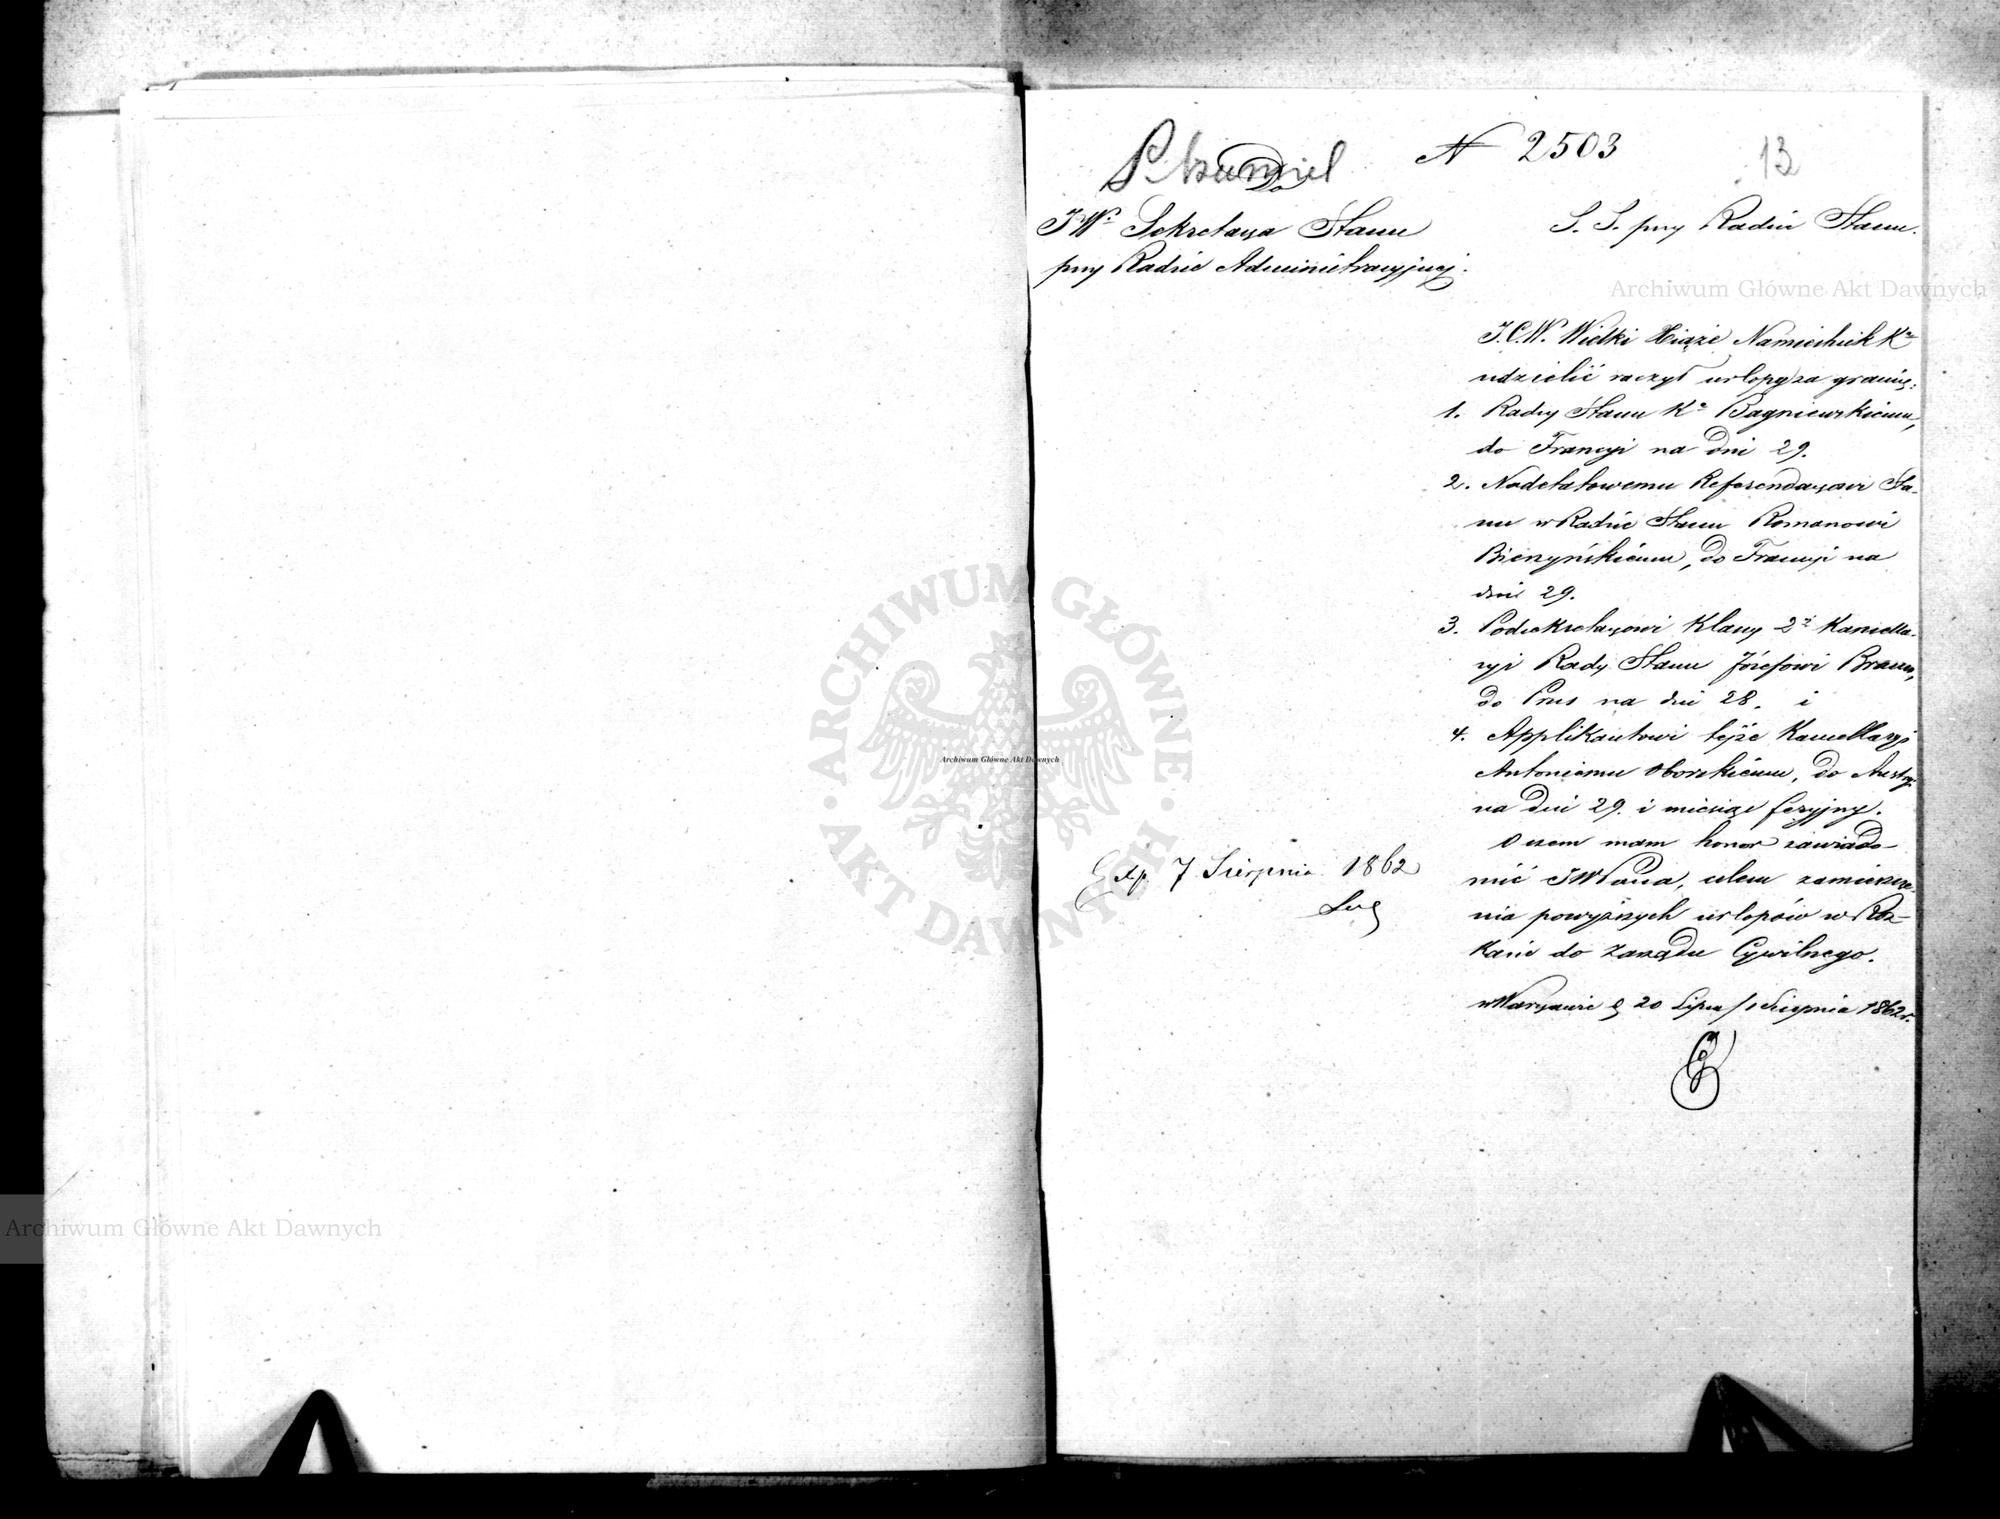 N 2503
13
Do
JWo Sekretarza Stanu
przy Radzie Administracyjnej.
S. S. przy Radzie Stanu.
J.C.W. Wielki Xiąże Namiestnik Ka
udzielić raczył urlopy za granicę:
1. Radcy Stanu Ka Bagniewskiemu,
do Francyi na dni 29.
2. Nadetatowemu Referendarzowi Sta-
nu w Radzie Stanu Romanowi
Bierzyńskiemu, do Francyi na
dni 29.
3. Podsekretarzowi Klassy 2éj Kancella-
ryi Rady Stanu Józefowi Braun,
do Prus na dni 28. i
4. Applikantowi tejże Kancellaryi
Antoniemu Oborskiemu, do Austryi
na dni 29. i miesiąc feryjny.
O czem mam honor zawiado-
mić JWPana, celem zamieszcze-
nia powyższych urlopów w Roz-
kazie do Zarządu Cywilnego.
w Warszawie d. 20 Lipca / 1 Sierpnia 1862 r.
Exp. 7 Sierpnia 1862
Archiwum Główne Akt Dawnych
Archiwum Główne Akt Dawnych
Archiwum Główne Akt Dawnych
ARCHIWUM GŁÓWNE
AKT DAWNYCH